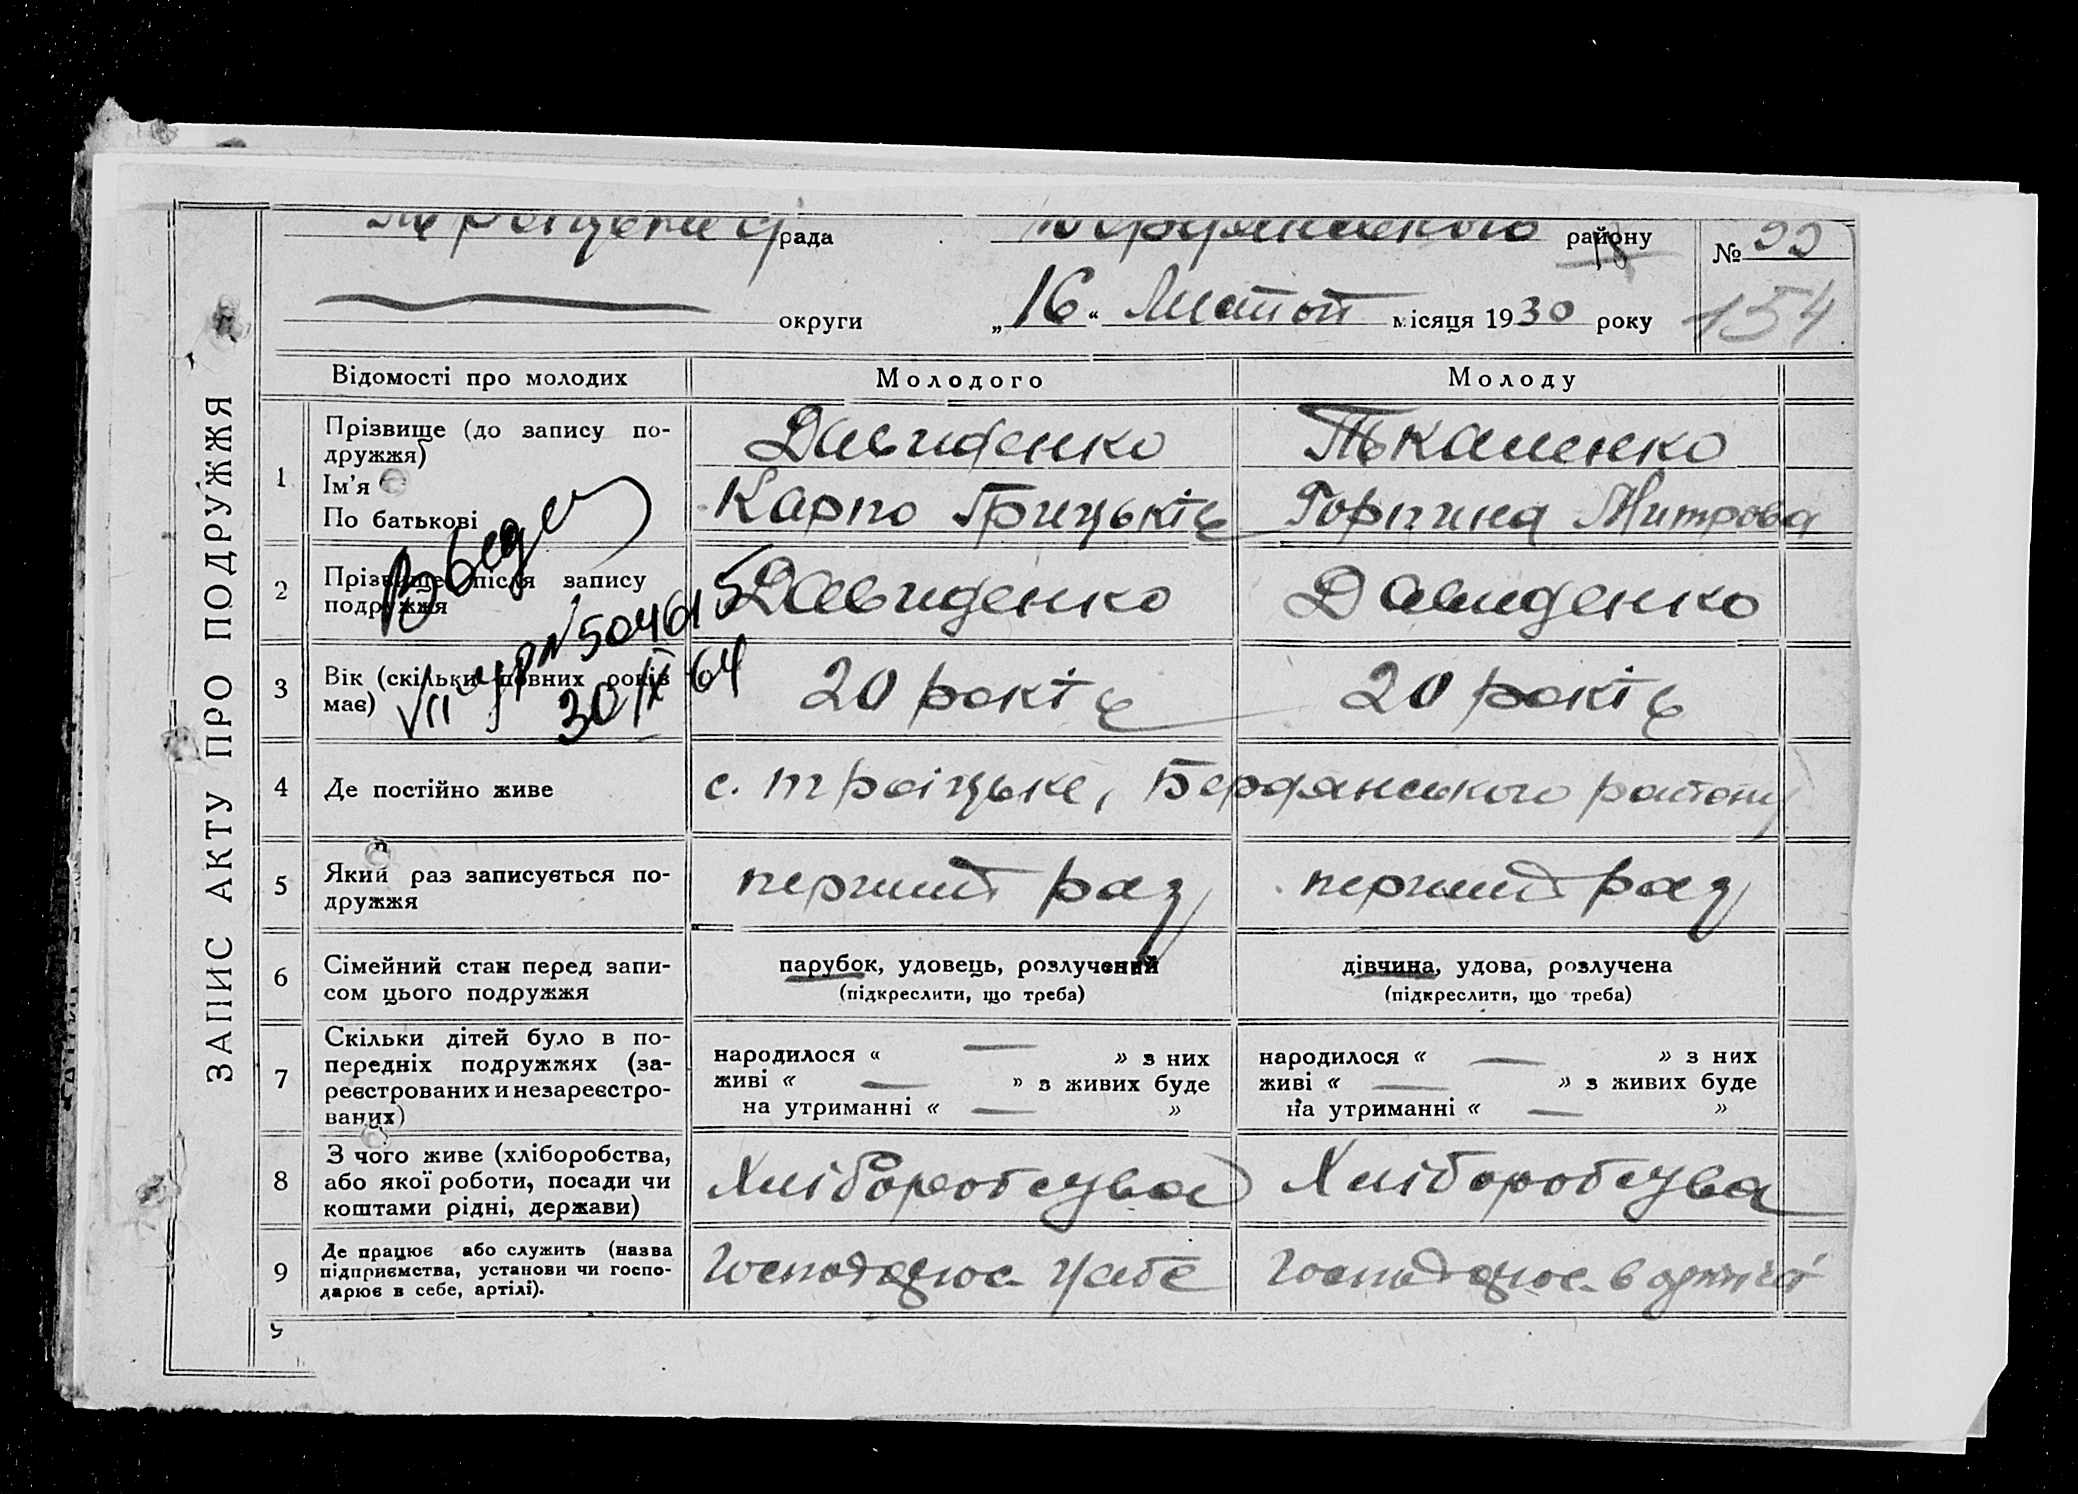 ЗАПИС АКТУ ПРО ПОДРУЖЖЯ
рада Бердянського району № 99
округи „16“ Листоп місяця 1930 року 154
Відомості про молодих Молодого Молоду
1 Прізвище (до запису по-
дружжя) Давиденко Ткаченко
Ім'я
По батькові Карпо Грицьків Горпина Митрова
2 Прізвище після запису
подружжя Давиденко Давиденко
3 Вік (скільки повних років
має) 20 років 20 років
30/IX 64
4 Де постійно живе с. Троіцьке, Бердянського району
5 Який раз записується по-
дружжя перший раз перший раз
6 Сімейний стан перед запи-
сом цього подружжя
парубок, удовець, розлучений
(підкреслити, що треба)
дівчина, удова, розлучена
(підкреслити, що треба)
7 Скільки дітей було в по-
передніх подружжях (за-
реєстрованих и незареєстро-
ваних)
народилося « — » з них
живі « — » з живих буде
на утриманні « — »
народилося « — » з них
живі « — » з живих буде
на утриманні « — »
8 З чого живе (хліборобства,
або якої роботи, посади чи
коштами рідні, держави)
Хлібороб Хлібороб
9 Де працює або служить (назва
підприємства, установи чи госпо-
дарює в себе, артілі).
9